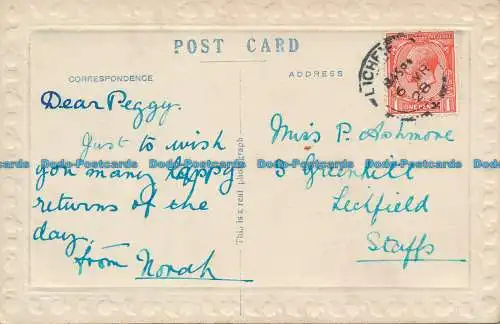 POST CARD
CORRESPONDENCE
ADDRESS
Dear Peggy.
Just to wish
you many happy
returns of the
day.
from Norah
This is a real photograph.
Miss P. Ashmore
3 Greenhill
Lichfield
Staffs
LICHFIELD
28
ONE PENNY
Dodo-Postcards Dodo-Postcards Dodo-Postcards Dodo-Postcards Dodo-Postcards